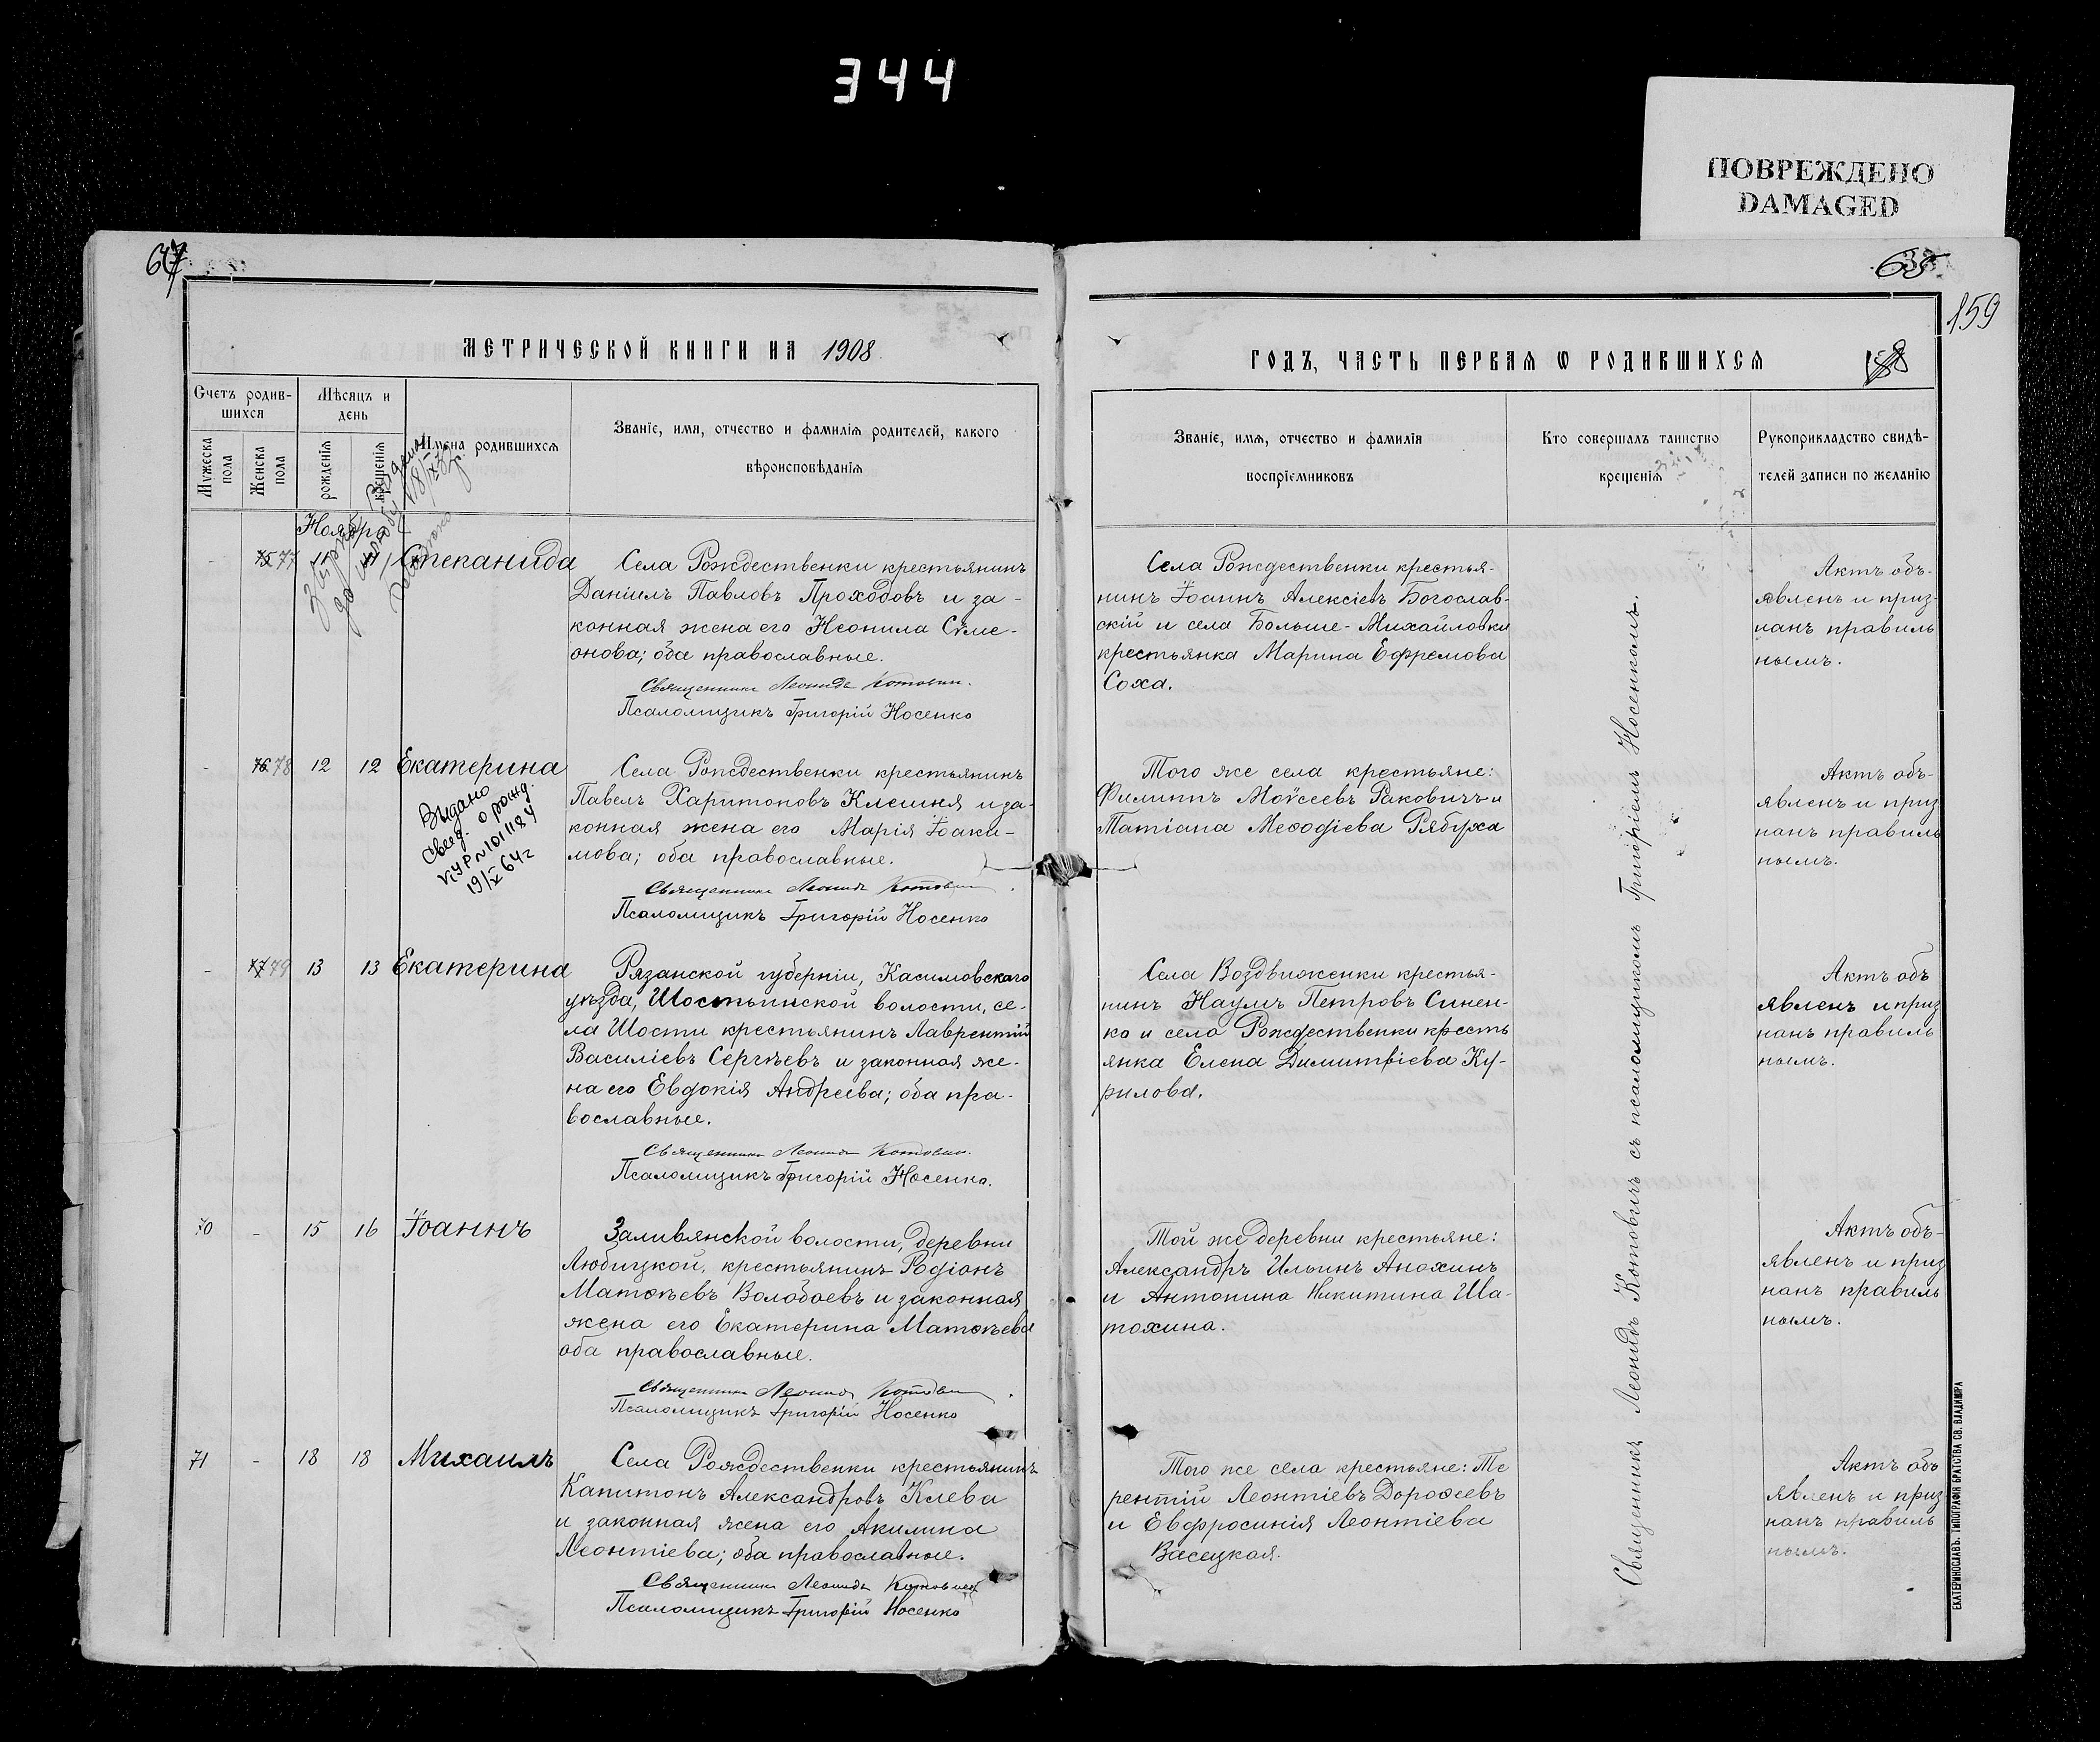 344
ПОВРЕЖДЕНО
DAMAGED
67
МЕТРИЧЕСКОЙ КНИГИ НА 1908
Счетъ родив-
шихся
Мѣсяцъ и
день
Мужеска
пола
Женска
пола
рожденія
крещенія
Имена родившихся
Званіе, имя, отчество и фамилія родителей, какого
вѣроисповѣданія
Ноябрь
- 75 77 11 11 Стефанида
Села Рождественки крестьянинъ
Даніилъ Павловъ Проходовъ и за-
конная жена его Неонила Сѵме-
онова; оба православные.
Священникъ Леонидъ Котовичъ.
Псаломщикъ Григорій Носенко
- 76 78 12 12 Екатерина
Выдано
свид. о рожд.
VIУР N 101184
19/X 64 г
Села Рождественки крестьянинъ
Павелъ Харитоновъ Клешня и за-
конная жена его Марія Іоаки-
мова; оба православные.
Священникъ Леонидъ Котовичъ
Псаломщикъ Григорій Носенко
- 77 79 13 13 Екатерина
Рязанской губерніи, Касимовскаго
уѣзда, Шостьинской волости, се-
ла Шости крестьянинъ Лаврентій
Василіевъ Сергѣевъ и законная же-
на его Евдокія Андреева; оба пра-
вославные.
Священникъ Леонидъ Котовичъ.
Псаломщикъ Григорій Носенко.
70 - 15 16 Іоаннъ
Заливянской волости, деревни
Любицкой, крестьянинъ Родіонъ
Матѳѣевъ Волобоевъ и законная
жена его Екатерина Матѳѣева
оба православные.
Священникъ Леонидъ Котовичъ.
Псаломщикъ Григорій Носенко
71 - 18 18 Михаилъ
Села Рождественки крестьянинъ
Капитонъ Александровъ Клева
и законная жена его Акилина
Леонтіева; оба православные.
Священникъ Леонидъ Котовичъ
Псаломщикъ Григорій Носенко
65
159
ГОДЪ, ЧАСТЬ ПЕРВАЯ Ѡ РОДИВШИХСЯ
Званіе, имя, отчество и фамилія
воспріемниковъ
Кто совершалъ таинство
крещенія
Рукоприкладство свидѣ-
телей записи по желанію
Села Рождественки крестья-
нинъ Іоаннъ Алексіевъ Богослав-
скій и села Больше-Михайловки
крестьянка Марина Ефремова
Соха.
Актъ объ-
явленъ и приз-
нанъ правиль
нымъ.
Того же села крестьяне:
Филиппъ Моѵсеевъ Раковичъ и
Татіана Меѳодіева Рябуха
Актъ объ-
явленъ и приз
нанъ правиль
нымъ.
Села Воздвиженки крестья-
нинъ Наумъ Петровъ Синен-
ко и села Рождественки кресть
янка Елена Димитріева Ку-
рилова.
Актъ объ
явленъ и приз
нанъ правиль
нымъ.
Той же деревни крестьяне:
Александръ Ильинъ Анохинъ
и Антонина Никитина Ша-
тохина.
Актъ объ-
явленъ и приз
нанъ правиль
нымъ.
Того же села крестьяне: Те
рентій Леонтіевъ Дороѳеевъ
и Евфросинія Леонтіева
Васецкая.
Актъ объ
явленъ и приз
нанъ правиль
нымъ.
Священникъ Леонидъ Котовичъ съ псаломщикомъ Григоріемъ Носенкомъ.
ЕКАТЕРИНОСЛАВЪ. ТИПОГРАФІЯ БРАТСТВА СВ. ВЛАДИМІРА